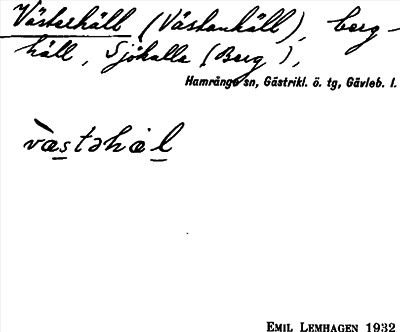 Västerhäll (Västanhäll), berg-
häll, Sjökalla (Berg),
Hamrånge sn, Gästrikl. ö. tg, Gävleb. l.
væ̀stəhæl
EMIL LEMHAGEN 1932